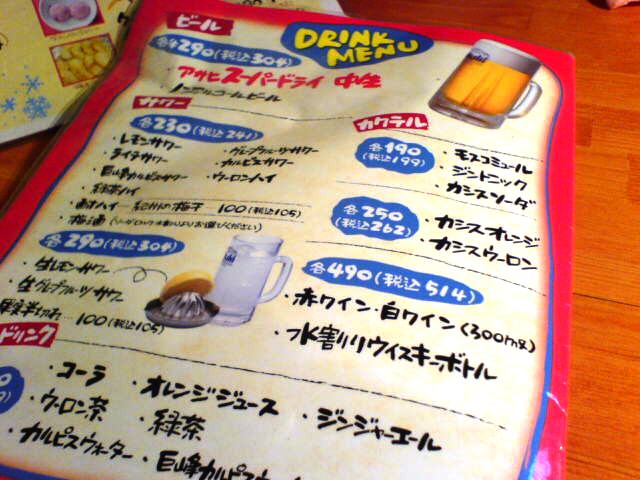 DRINK
MENU
ビール
各290(税込304)
・アサヒスーパードライ 中生
・ノンアルコールビール
サワー
各230(税込241)
・レモンサワー ・グレープフルーツサワー
・ライチサワー ・カルピスサワー
・巨峰カルピスサワー ・ウーロンハイ
・緑茶ハイ
梅干 100(税込105)
・梅酒
各290(税込304)
・生レモンサワー
・生グレープフルーツサワー
100(税込105)
カクテル
各190
(税込199)
・モスコミュール
・ジントニック
・カシスソーダ
各250
(税込262)
・カシスオレンジ
・カシスウーロン
各490(税込514)
・赤ワイン・白ワイン(300ml)
・水割りウイスキーボトル
ドリンク
・コーラ ・オレンジジュース ・ジンジャーエール
・ウーロン茶 ・緑茶
・カルピスウォーター ・巨峰カルピスウ